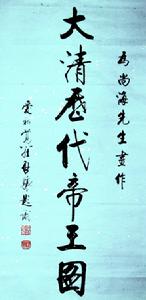 為尚海先生畫作
大清歷代帝王圖
愛新覺羅啟驤題